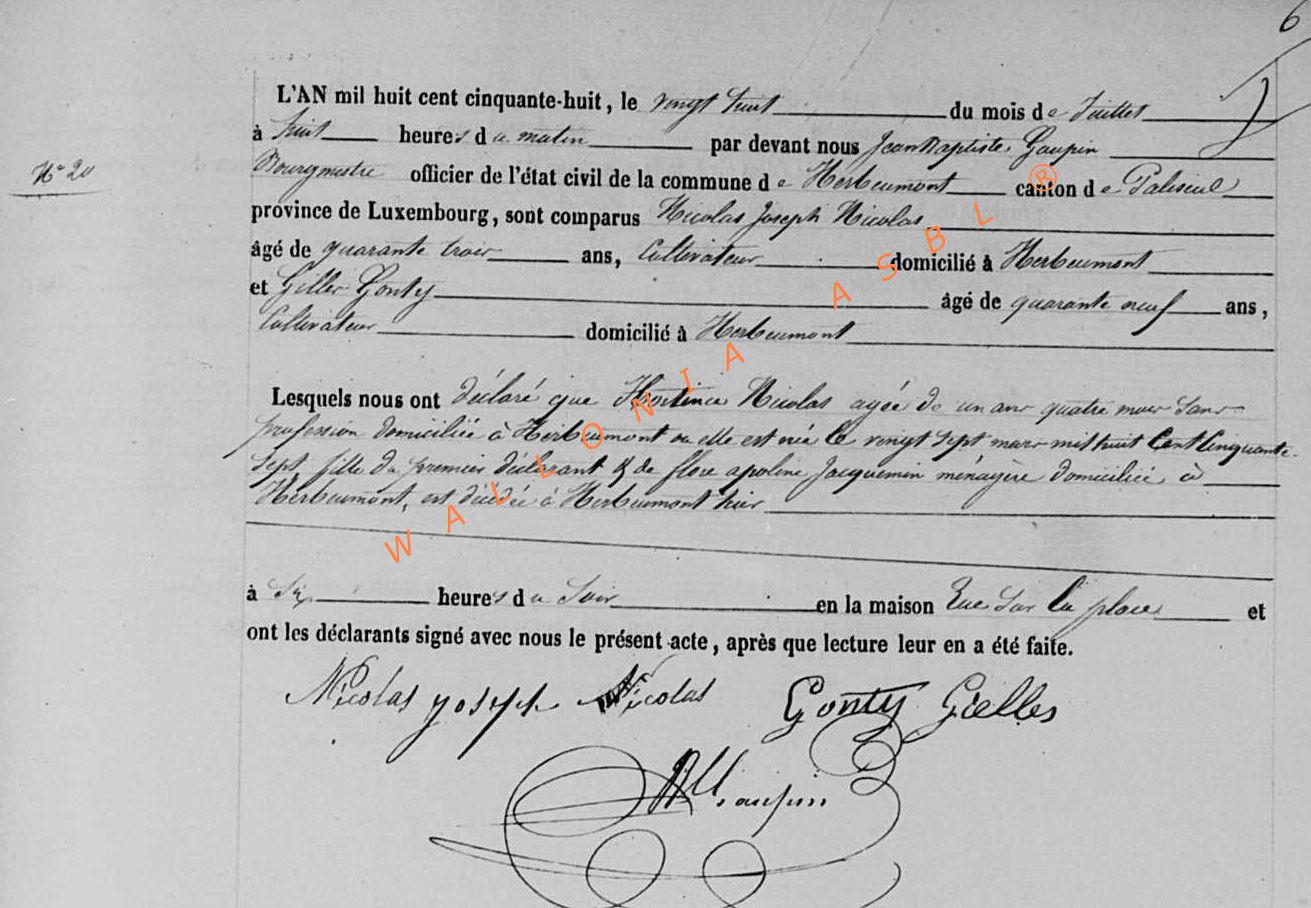 6
L'AN mil huit cent cinquante-huit, le vingt huit du mois de Juillet
à huit heures du matin par devant nous Jean Baptiste Gaupin
N° 20
Bourgmestre officier de l'état civil de la commune de Herbeumont canton de Paliseul
province de Luxembourg, sont comparus Nicolas Joseph Nicolas
âgé de quarante trois ans, Cultivateur domicilié à Herbeumont
et Gilles Gonty âgé de quarante neuf ans,
Cultivateur domicilié à Herbeumont
Lesquels nous ont déclaré que Hortence Nicolas agée de un ans quatre mois sans
profession domiciliée à Herbeumont ou elle est née le vingt sept mars mil huit Cent Cinquante-
sept fille du premier déclarant & de flore apoline Jacquemin ménagère domiciliée à
Herbeumont, est décédée à Herbeumont hier
à six heures du Soir en la maison Rue Sur la place et
ont les déclarants signé avec nous le présent acte, après que lecture leur en a été faite.
Nicolas yoseph Nicolas Gonty Gielles
Gaupin
WALLONIA ASBL ®